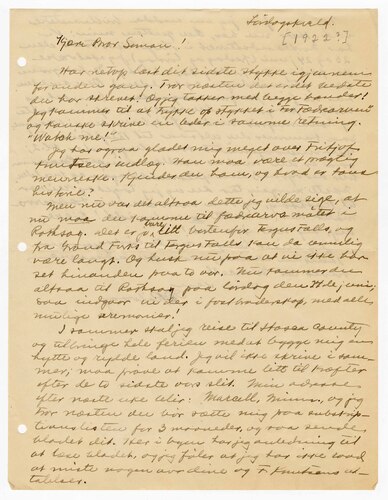 Lördagskveld.
[1922?]
Kjære Bror Simon!
Har netop læst dit sidste stykke igjennem
for anden gang. Tror næsten det er det bedste
du har skrevet. Og jeg takker med begge hænder!
Jeg kommer til at trykke op stykket i "
og kanske skrive en leder i samme retning.
Watch me!"
Jeg har ogsaa glædet mig meget over Fritjof
Knutsens indlæg. Han maa være et prægtig
menneske. Kjender du ham, og hvad er hans
historie?
Men nu var det altsaa dette jeg vilde sige, at
nu maa du komme til fædrearvs møtet i
Rothsay. Det er bare litt vestenfor Fergus Falls, og
fra Grand Forks til Fergus Falls kan da umulig
være langt. Og husk nu paa at vi ikke har
set hinanden paa to aar. Nu kommer du
altsaa til Rothsay paa lördag den juni,
saa indgaar vi der i fostbroderskap, med alle
mulige seremonier!
I sommer skal jeg reise til Itasca County
og tilbringe hele ferien med at bygge mig en
hytte og rydde land. Jeg vil ikke skrive i som-
mer, maa pröve at komme litt til kræfter
efter de to sidste aars slit. Min adresse
efter næste uke blir: Marcell, Minn., og jeg
tror næsten du bör sætte mig paa subskrip-
tions listen for 3 maaneder, og saa sende
bladet dit. Her i byen har jeg anledning til
at læse bladet, og jeg föler at jeg har ikke raad
at miste nogen av dine og F. Knutsens ut-
talelser.